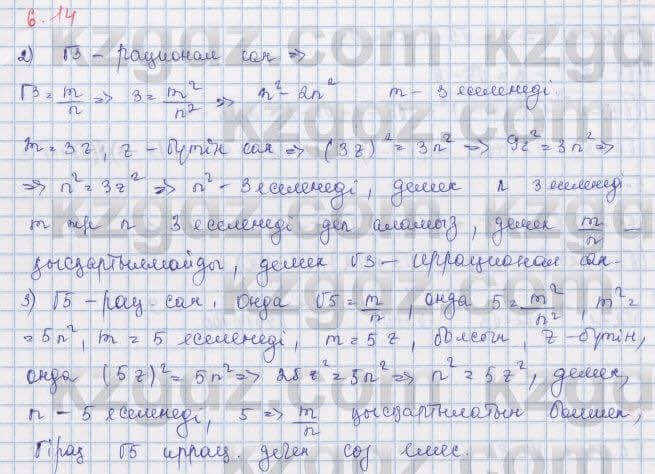 6.14
2) √3 - рационал сан =>
√3 = m/n => 3 = m²/n² => n² - 2n² m - 3 еселенеді.
m = 3z, z - бүтін сан => (3z)² = 3n² => 9z² = 3n² =>
=> n² = 3z² => n² - 3 еселенеді, демек n 3 еселенеді
m мен n 3 еселенеді деп аламыз, демек m/n -
қысқартылмайды, демек √3 - иррационал сан.
3) √5 - рац. сан, онда √5 = m/n, онда 5 = m²/n², m² =
= 5n², m = 5 еселенеді, m = 5z, болсын, z - бүтін,
онда (5z)² = 5n² => 25z² = 5n² => n² = 5z², демек,
n - 5 еселенеді, 5 => m/n қысқартылатын бөлшек,
бірақ √5 иррац. деген сөз емес.
kzgdz.com